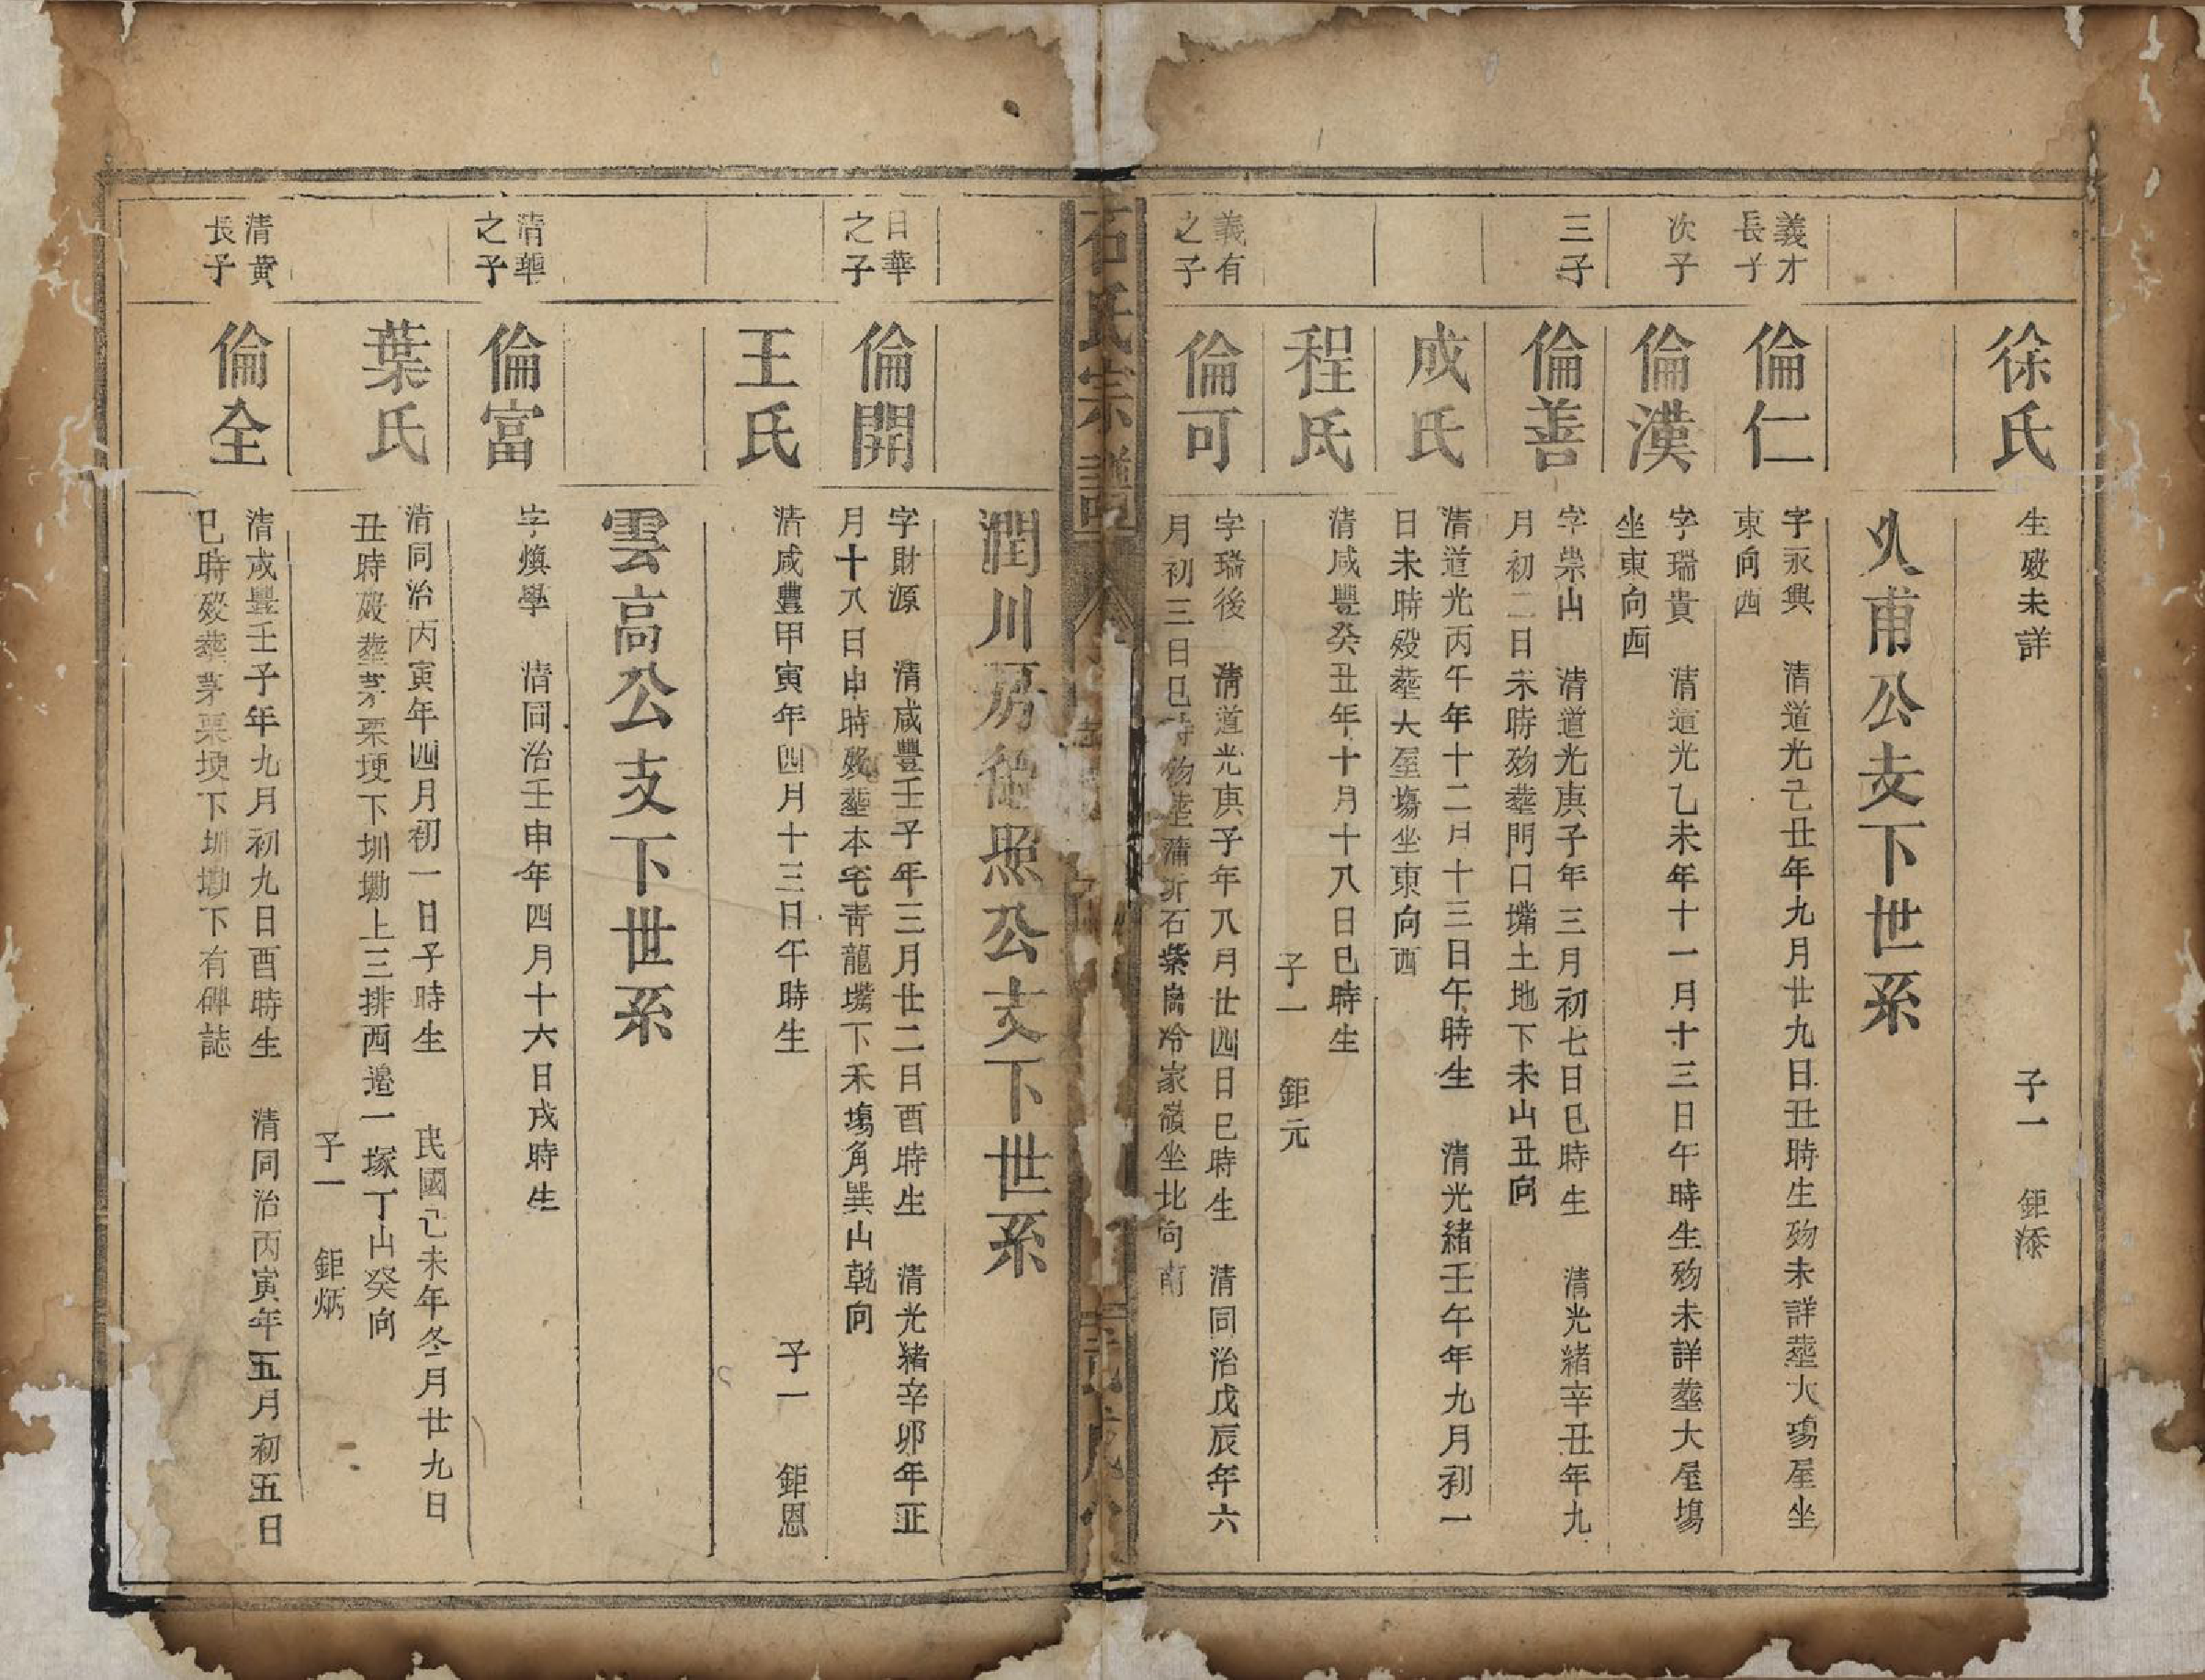 徐氏
生歿未詳
子一 鉅添
公支下世系
義才長子
倫仁
字永興 清道光己丑年九月廿九日丑時生歿未詳葬大塲屋坐
東向西
次子
倫漢
字瑞貴 清道光乙未年十一月十三日午時生歿未詳葬大屋塲
坐東向西
三子
倫善
字崇山 清道光庚子年三月初七日巳時生 清光緒辛丑年九
月初二日未時歿葬門口嘴土地下未山丑向
成氏
清道光丙午年十二月十三日午時生 清光緒壬午年九月初一
日未時歿葬大屋塲坐東向西
程氏
清咸豐癸丑年十月十八日巳時生
子一 鉅元
義有之子
倫可
字瑞後 清道光庚子年八月廿四日巳時生 清同治戊辰年六
月初三日巳時歿葬蒲圻石紫崗冷家嶺坐北向南
石氏宗譜
潤川房德照公支下世系
日華之子
倫開
字財源 清咸豐壬子年三月廿二日酉時生 清光緒辛卯年正
月十八日申時歿葬本宅靑龍嘴下禾塲角巽山乾向
王氏
清咸豐甲寅年四月十三日午時生
子一 鉅恩
雲高公支下世系
清華之子
倫富
字煥學 清同治壬申年四月十六日戌時生
葉氏
清同治丙寅年四月初一日子時生 民國己未年冬月廿九日
丑時歿葬茅栗埂下圳墈上三排西邊一塚丁山癸向
子一 鉅炳
清黃長子
倫全
清咸豐壬子年九月初九日酉時生 清同治丙寅年五月初五日
巳時歿葬茅栗埂下圳墈下有碑誌